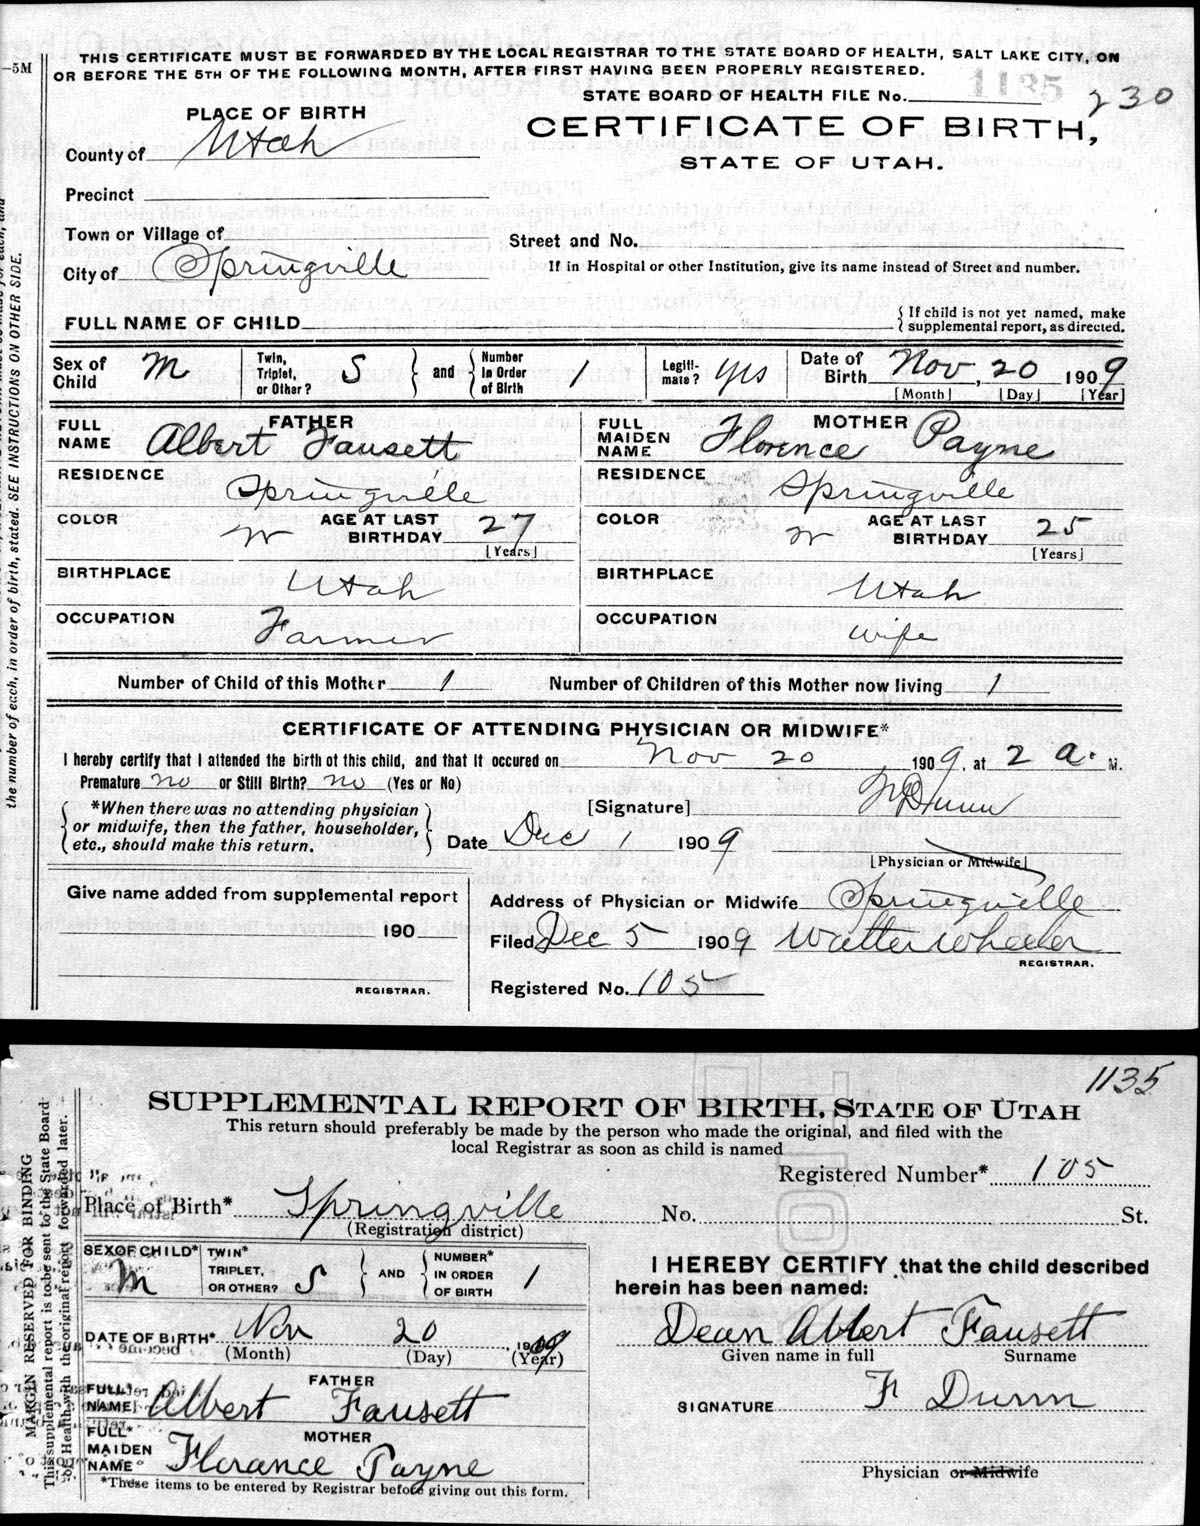 THIS CERTIFICATE MUST BE FORWARDED BY THE LOCAL REGISTRAR TO THE STATE BOARD OF HEALTH, SALT LAKE CITY, ON
—5M OR BEFORE THE 5TH OF THE FOLLOWING MONTH, AFTER FIRST HAVING BEEN PROPERLY REGISTERED.
1135
STATE BOARD OF HEALTH FILE No. 230
PLACE OF BIRTH
CERTIFICATE OF BIRTH,
STATE OF UTAH.
County of Utah
Precinct
Town or Village of
Street and No.
City of Springville
If in Hospital or other Institution, give its name instead of Street and number.
FULL NAME OF CHILD
{ If child is not yet named, make
{ supplemental report, as directed.
Sex of Child M
Twin, Triplet, or Other? S } and { Number in Order of Birth 1
Legiti-mate? yes
Date of Birth Nov, 20 1909
[Month] [Day] [Year]
FATHER
FULL NAME Albert Fausett
RESIDENCE Springville
COLOR W AGE AT LAST BIRTHDAY 27
[Years]
BIRTHPLACE Utah
OCCUPATION Farmer
MOTHER
FULL MAIDEN NAME Florence Payne
RESIDENCE Springville
COLOR W AGE AT LAST BIRTHDAY 25
[Years]
BIRTHPLACE Utah
OCCUPATION wife
Number of Child of this Mother 1
Number of Children of this Mother now living 1
CERTIFICATE OF ATTENDING PHYSICIAN OR MIDWIFE*
I hereby certify that I attended the birth of this child, and that it occured on Nov 20 1909, at 2 a. M.
Premature no or Still Birth? no (Yes or No)
*When there was no attending physician
or midwife, then the father, householder,
etc., should make this return.
[Signature] F Dunn
Date Dec 1 1909
[Physician or Midwife]
Give name added from supplemental report
190
REGISTRAR.
Address of Physician or Midwife Springville
Filed Dec 5 1909 Walter Wheeler
REGISTRAR.
Registered No. 105
the number of each, in order of birth, stated. SEE INSTRUCTIONS ON OTHER SIDE.
1135
SUPPLEMENTAL REPORT OF BIRTH, STATE OF UTAH
This return should preferably be made by the person who made the original, and filed with the
local Registrar as soon as child is named
Registered Number* 105
Place of Birth* Springville No. St.
(Registration district)
SEX OF CHILD* M
TWIN* TRIPLET, OR OTHER? S } AND { NUMBER* IN ORDER OF BIRTH 1
DATE OF BIRTH* Nov 20, 1909
(Month) (Day) (Year)
FATHER
FULL* NAME Albert Fausett
MOTHER
FULL* MAIDEN NAME* Florance Payne
*These items to be entered by Registrar before giving out this form.
I HEREBY CERTIFY that the child described
herein has been named:
Dean Albert Fausett
Given name in full Surname
SIGNATURE F Dunn
Physician or Midwife
MARGIN RESERVED FOR BINDING
This supplemental report is to be sent to the State Board
of Health with the original report forwarded later.